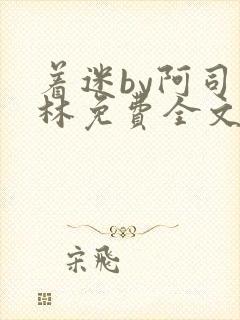 着迷by阿司
林免费全文
宋飛